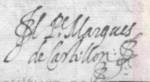 El P.e Marques
de Castillon